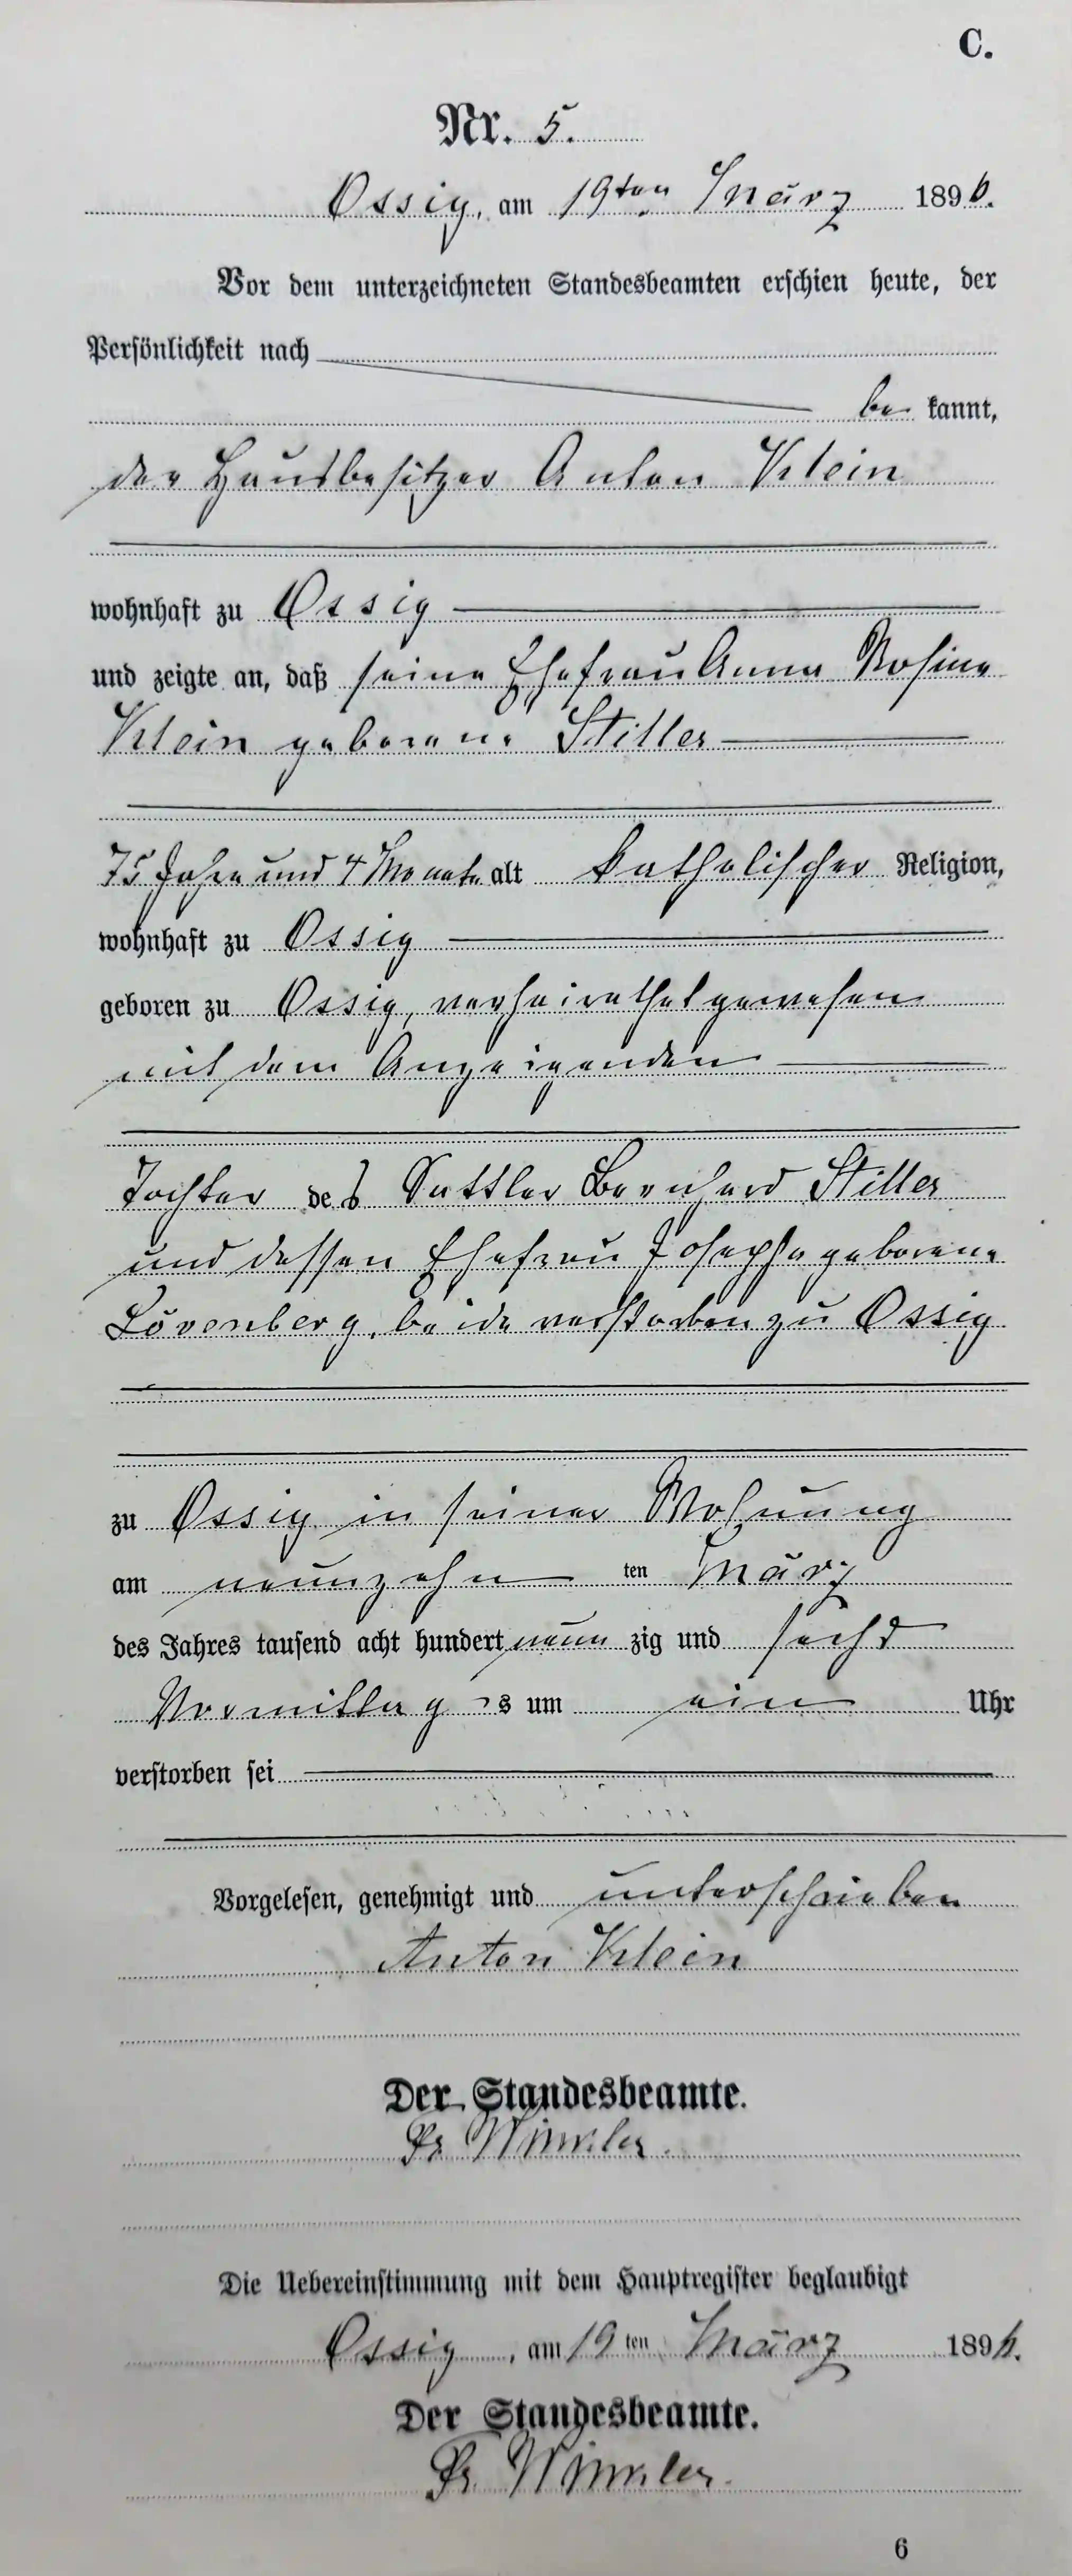 C.
Nr. 5.
Ossig, am 19ten März 1896.
Vor dem unterzeichneten Standesbeamten erschien heute, der
Persönlichkeit nach
be kannt,
der Hausbesitzer Anton Klein
wohnhaft zu Ossig
und zeigte an, daß seine Ehefrau Anna Rosina
Klein geborene Stiller
75 Jahre und 4 Monate alt katholischer Religion,
wohnhaft zu Ossig
geboren zu Ossig, verheirathet gewesen
mit dem Anzeigenden
Tochter des Sattler Bernhard Stiller
und dessen Ehefrau Josepha geborene
Lövenberg, beide verstorben zu Ossig
zu Ossig in seiner Wohnung
am neunzehn ten März
des Jahres tausend acht hundert neun zig und sechs
Vormittag s um ein Uhr
verstorben sei
Vorgelesen, genehmigt und unterschrieben
Anton Klein
Der Standesbeamte.
Fr Winkler.
Die Uebereinstimmung mit dem Hauptregister beglaubigt
Ossig, am 19 ten März 1896.
Der Standesbeamte.
Fr Winkler.
6